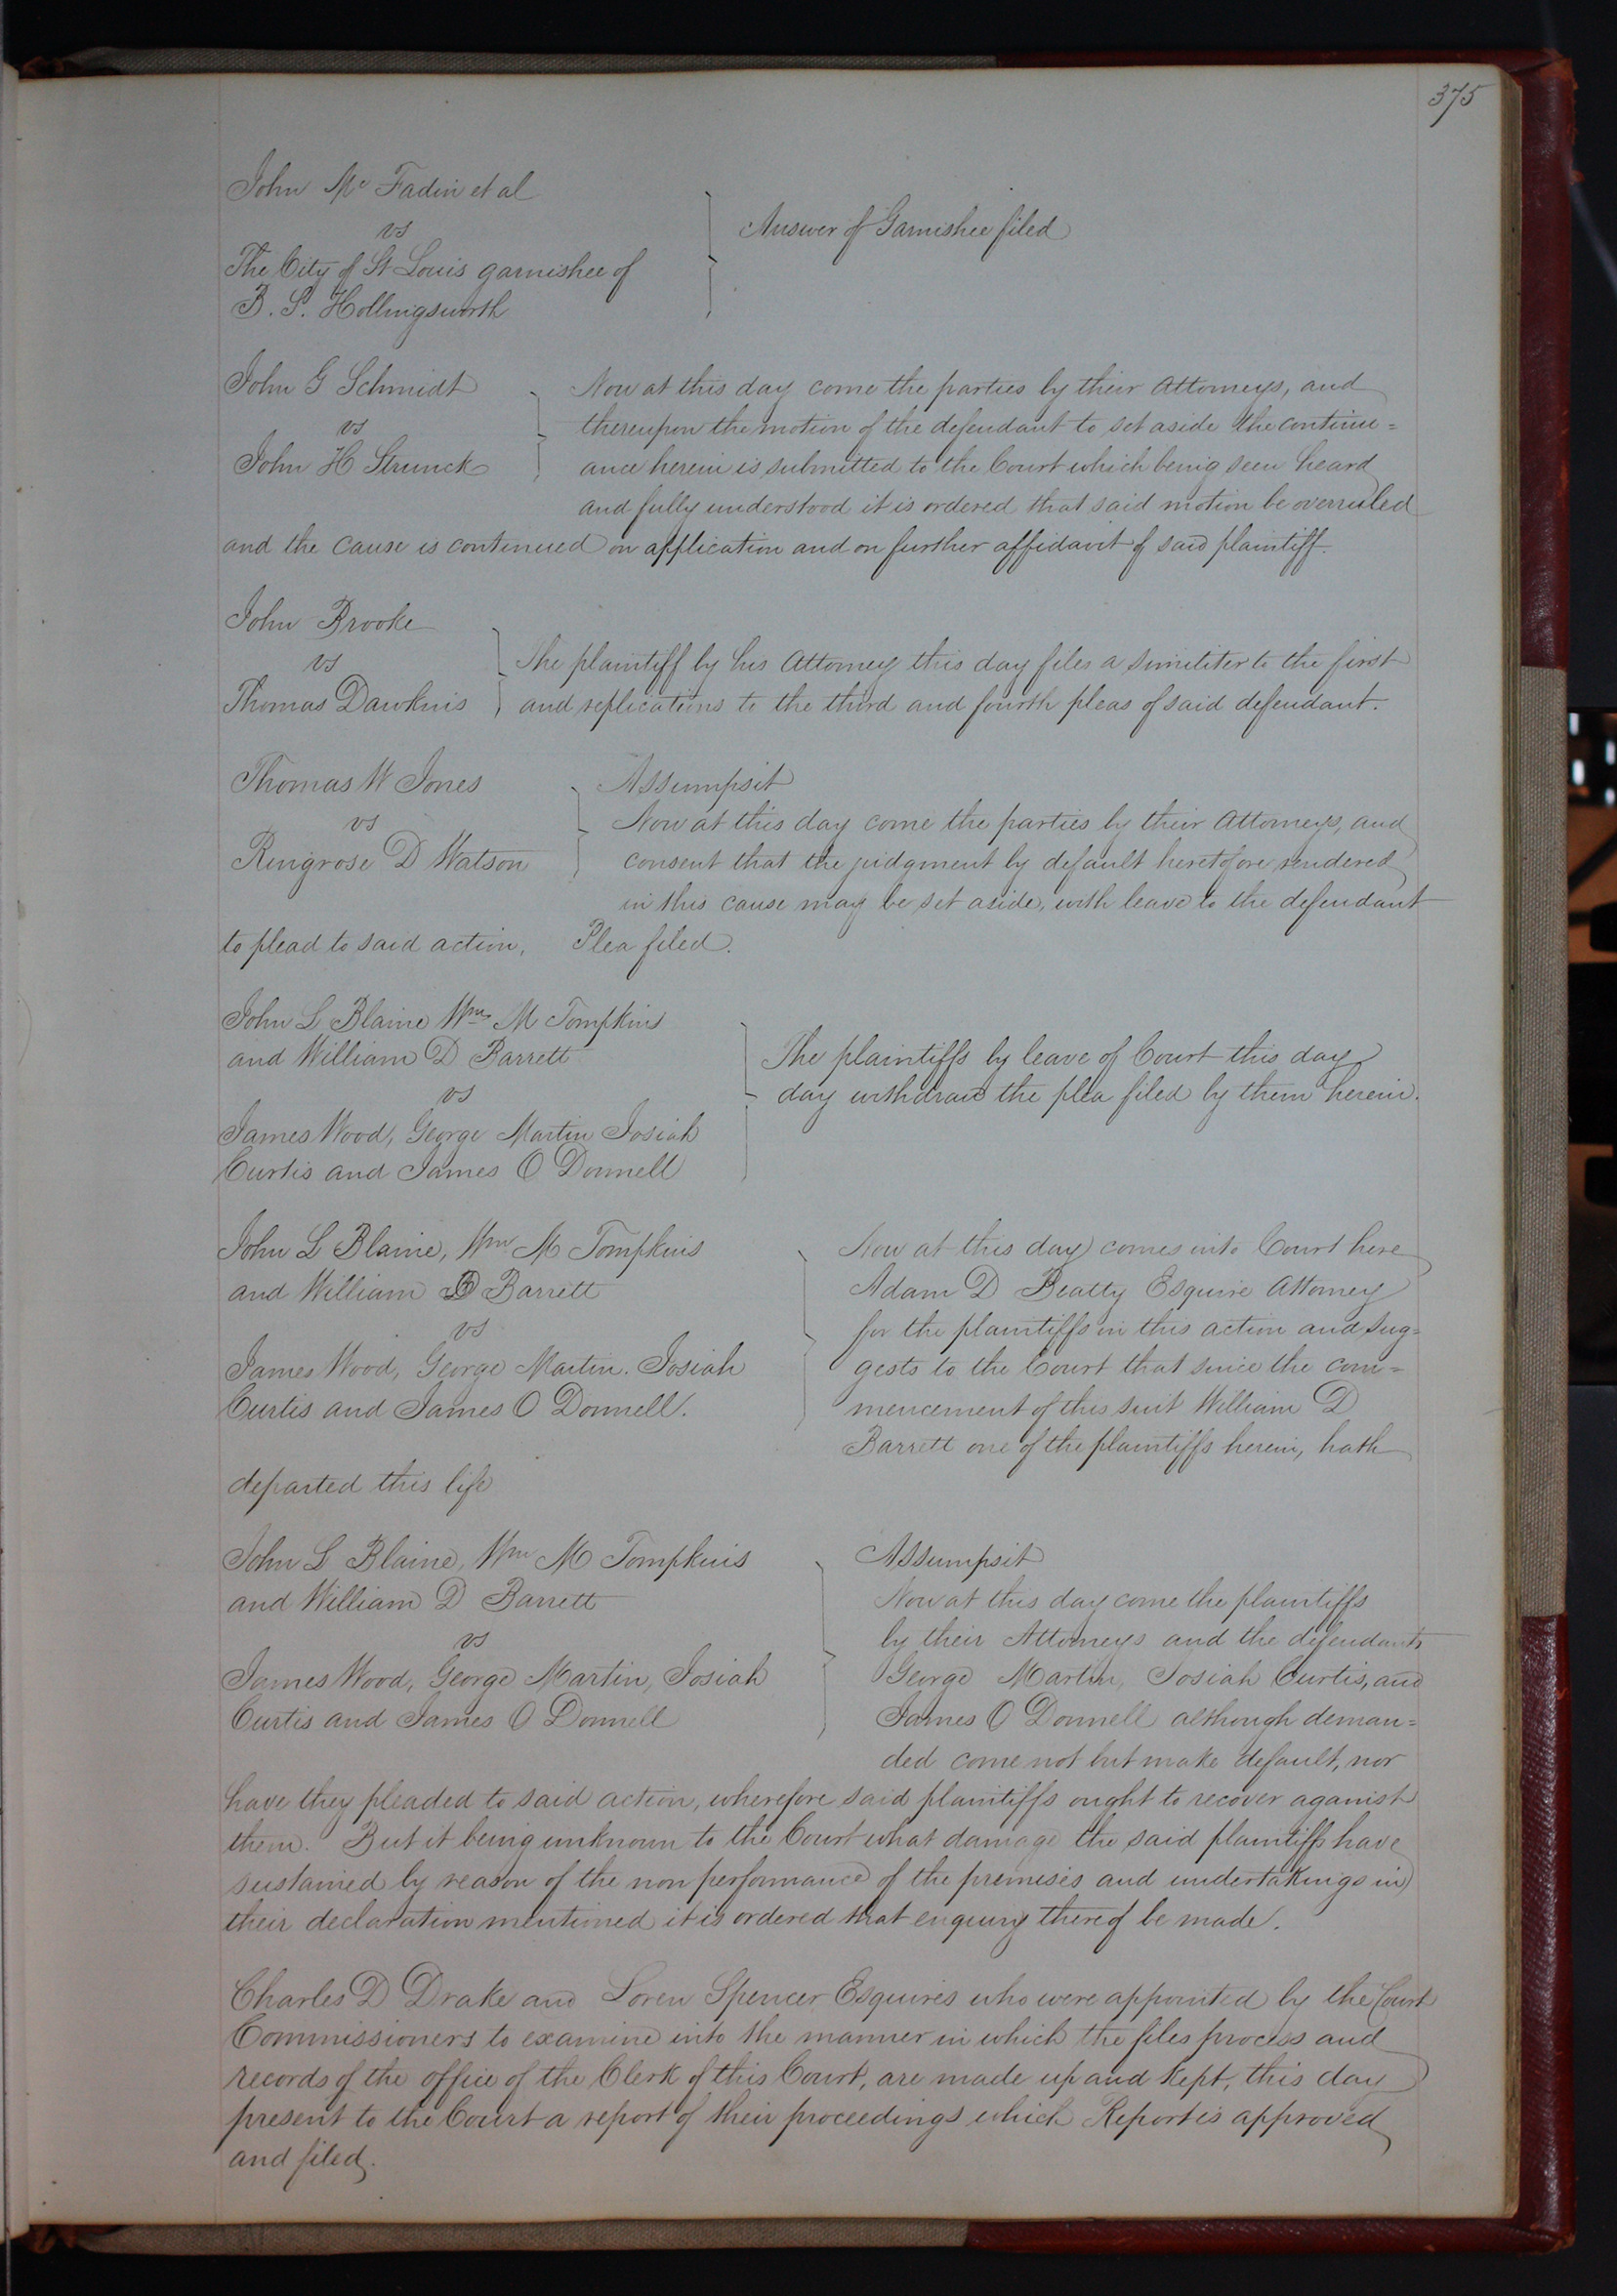 375
John Mc Fadin et al
vs
The City of St Louis garnishee of
B. S. Hollingsworth
Answer of Garnishee filed
John G Schmidt
vs
John H Strunck
Now at this day come the parties by their Attorneys, and
thereupon the motion of the defendant to set aside the continu=
ance herein is submitted to the Court which being seen heard
and fully understood it is ordered that said motion be overruled
and the cause is continued on application and on further affidavit of said plaintiff.
John Brooke
vs
Thomas Dawkins
The plaintiff by his Attorney this day files a similiter to the first
and replications to the third and fourth pleas of said defendant.
Thomas W Jones
vs
Ringrose D Watson
Assumpsit
Now at this day come the parties by their Attorneys, and
consent that the judgment by default heretofore rendered
in this cause may be set aside, with leave to the defendant
to plead to said action, Plea filed.
John L Blaine Wm M Tompkins
and William D Barrett
vs
James Wood, George Martin Josiah
Curtis and James O Donnell
The plaintiffs by leave of Court this day
day withdraw the plea filed by them herein.
John L Blaine, Wm M Tompkins
and William D Barrett
vs
James Wood, George Martin. Josiah
Curtis and James O Donnell.
Now at this day comes into Court here
Adam D Beatty Esquire Attorney
for the plaintiffs in this action and sug=
gests to the Court that since the com=
mencement of this suit William D
Barrett one of the plaintiffs herein, hath
departed this life
John L Blaine, Wm M Tompkins
and William D Barrett
vs
James Wood, George Martin, Josiah
Curtis and James O Donnell
Assumpsit
Now at this day come the plaintiffs
by their Attorneys and the defendants
George Martin, Josiah Curtis, and
James O Donnell although deman=
ded come not but make default, nor
have they pleaded to said action, wherefore said plaintiffs ought to recover against
them. But it being unknown to the Court what damage the said plaintiffs have
sustained by reason of the non performance of the premises and undertakings in
their declaration mentioned it is ordered that enquiry thereof be made.
Charles D Drake and Loren Spencer Esquires who were appointed by the Court
Commissioners to examine into the manner in which the files process and
records of the office of the Clerk of this Court, are made up and kept, this day
present to the Court a report of their proceedings which Report is approved
and filed.